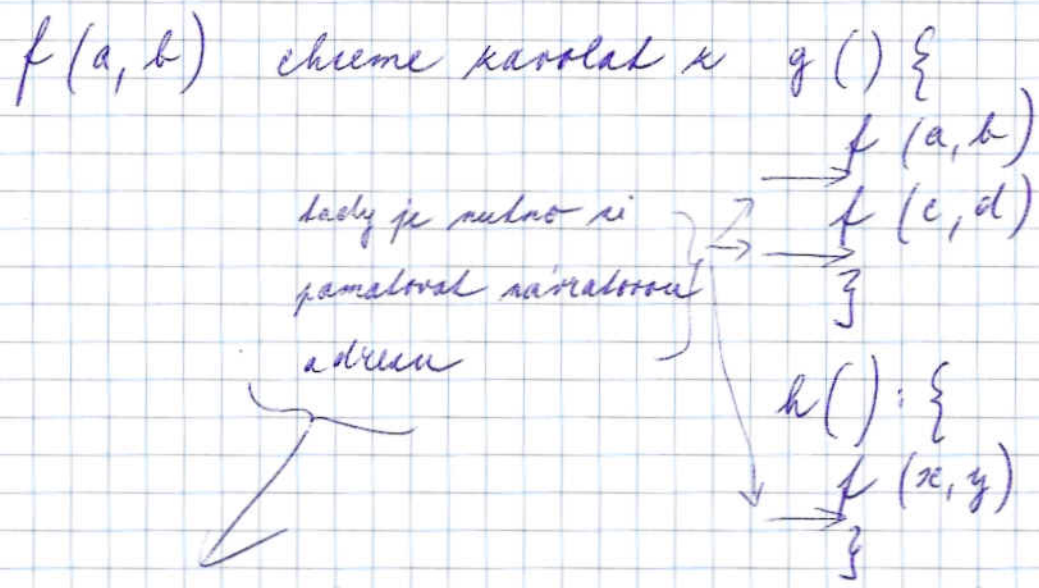 f(a, b) chceme zavolat z g() {
f(a, b)
f(c, d)
}
tady je nutno si
pamatovat návratovou
adresu
h(): {
f(x, y)
}